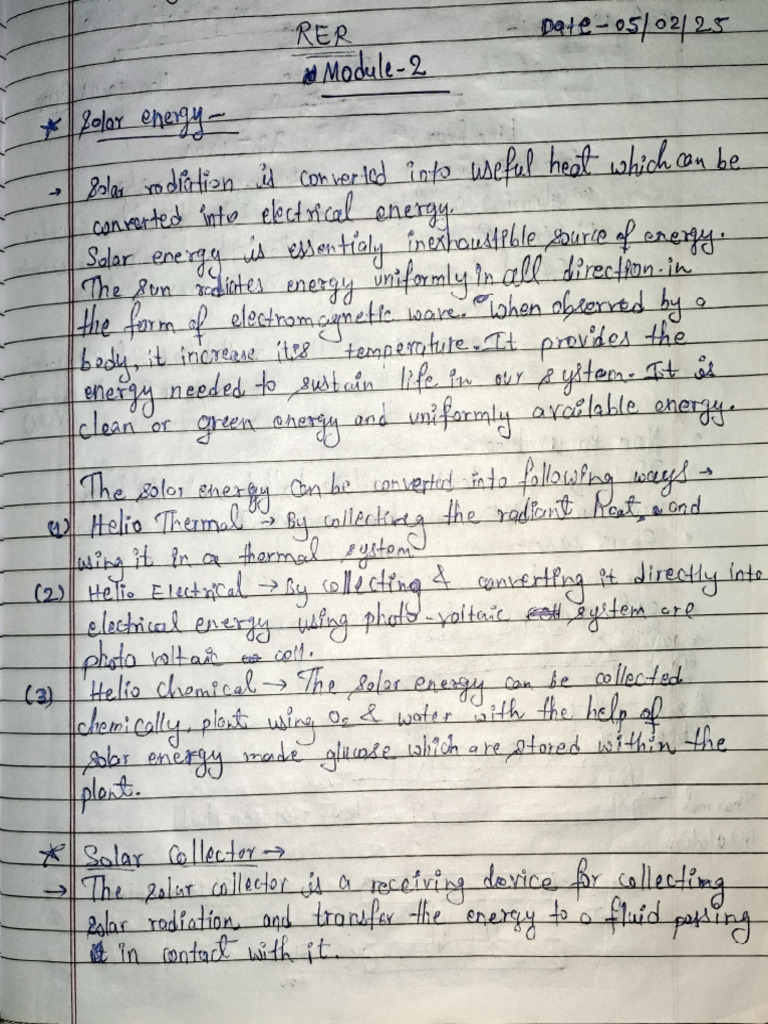 RER
Date - 05/02/25
Module-2
* Solar energy -
→ Solar radiation is converted into useful heat which can be
converted into electrical energy.
Solar energy is essentialy inexhaustible source of energy.
The sun radiates energy uniformly in all direction in
the form of electromagnetic wave. When observed by a
body, it increase its temperature. It provides the
energy needed to sustain life in our system. It is
clean or green energy and uniformly available energy.
The solar energy can be converted into following ways →
(1) Helio Thermal → By collecting the radiant heat, and
using it in a thermal system
(2) Helio Electrical → By collecting & converting it directly into
electrical energy using photo-voltaic system are
photo voltaic cell.
(3) Helio Chemical → The solar energy can be collected
chemically, plant using O₂ & water with the help of
solar energy made glucose which are stored within the
plant.
* Solar Collector →
→ The solar collector is a receiving device for collecting
solar radiation and transfer the energy to a fluid passing
in contact with it.